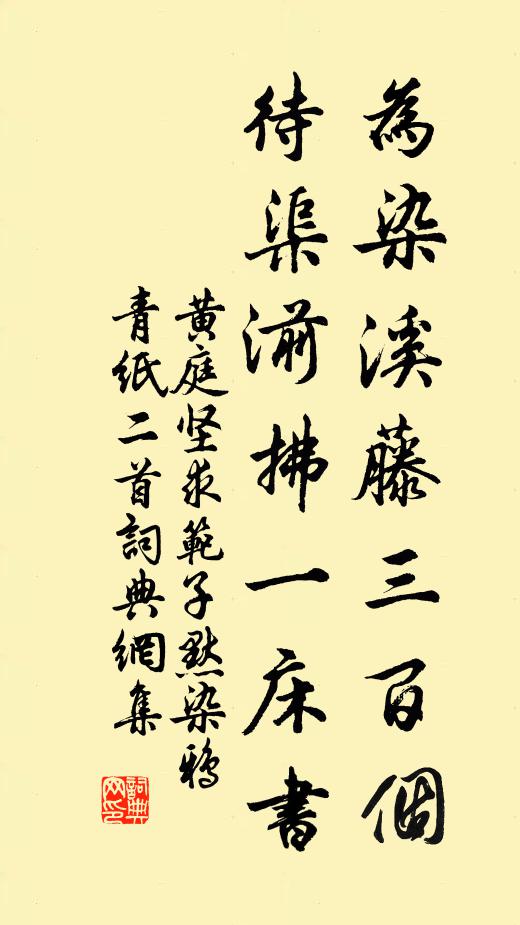 為染溪藤三百個
待渠湔拂一床書
黄庭坚求範子默染鴉
青紙二首詞典網集
詞典
网印